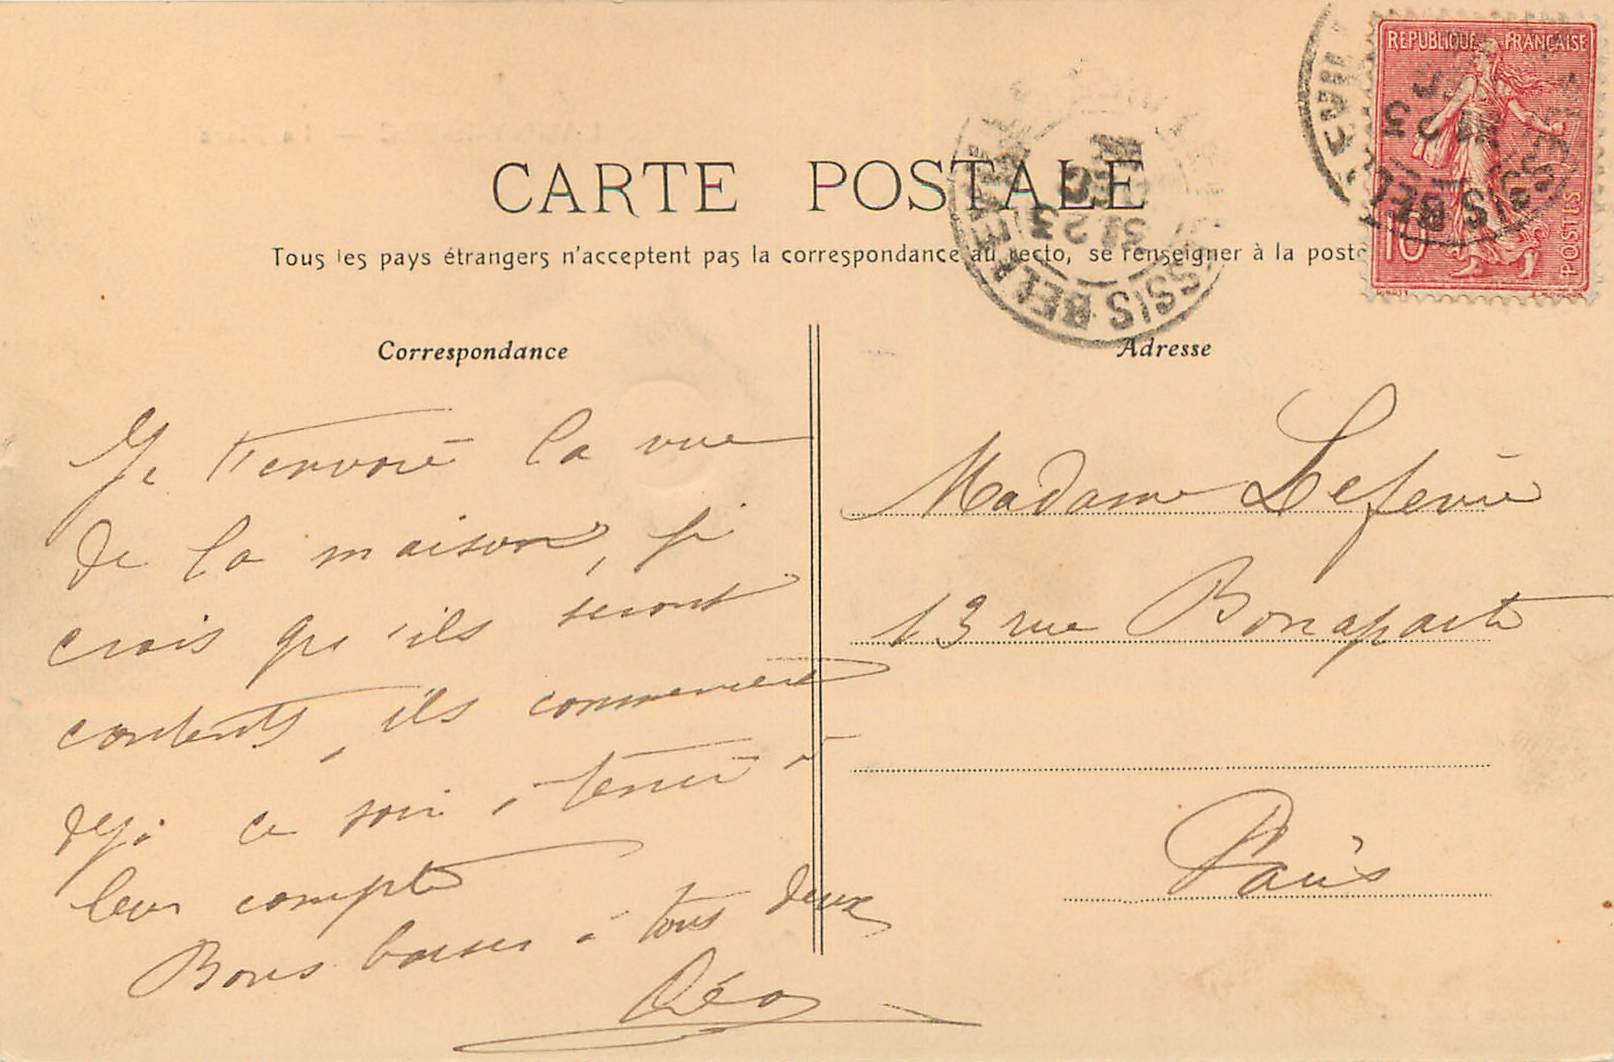 REPUBLIQUE FRANÇAISE
10
POSTES
CARTE POSTALE
Tous les pays étrangers n'acceptent pas la correspondance au recto, se renseigner à la poste
Correspondance
Je t'envoie la vue
de la maison, je
crois qu'ils seront
contents, ils commencent
déjà ce soir, à
leur compte
Bons baisers à tous deux
Léo
Adresse
Madame Lefevre
13 rue Bonaparte
Paris